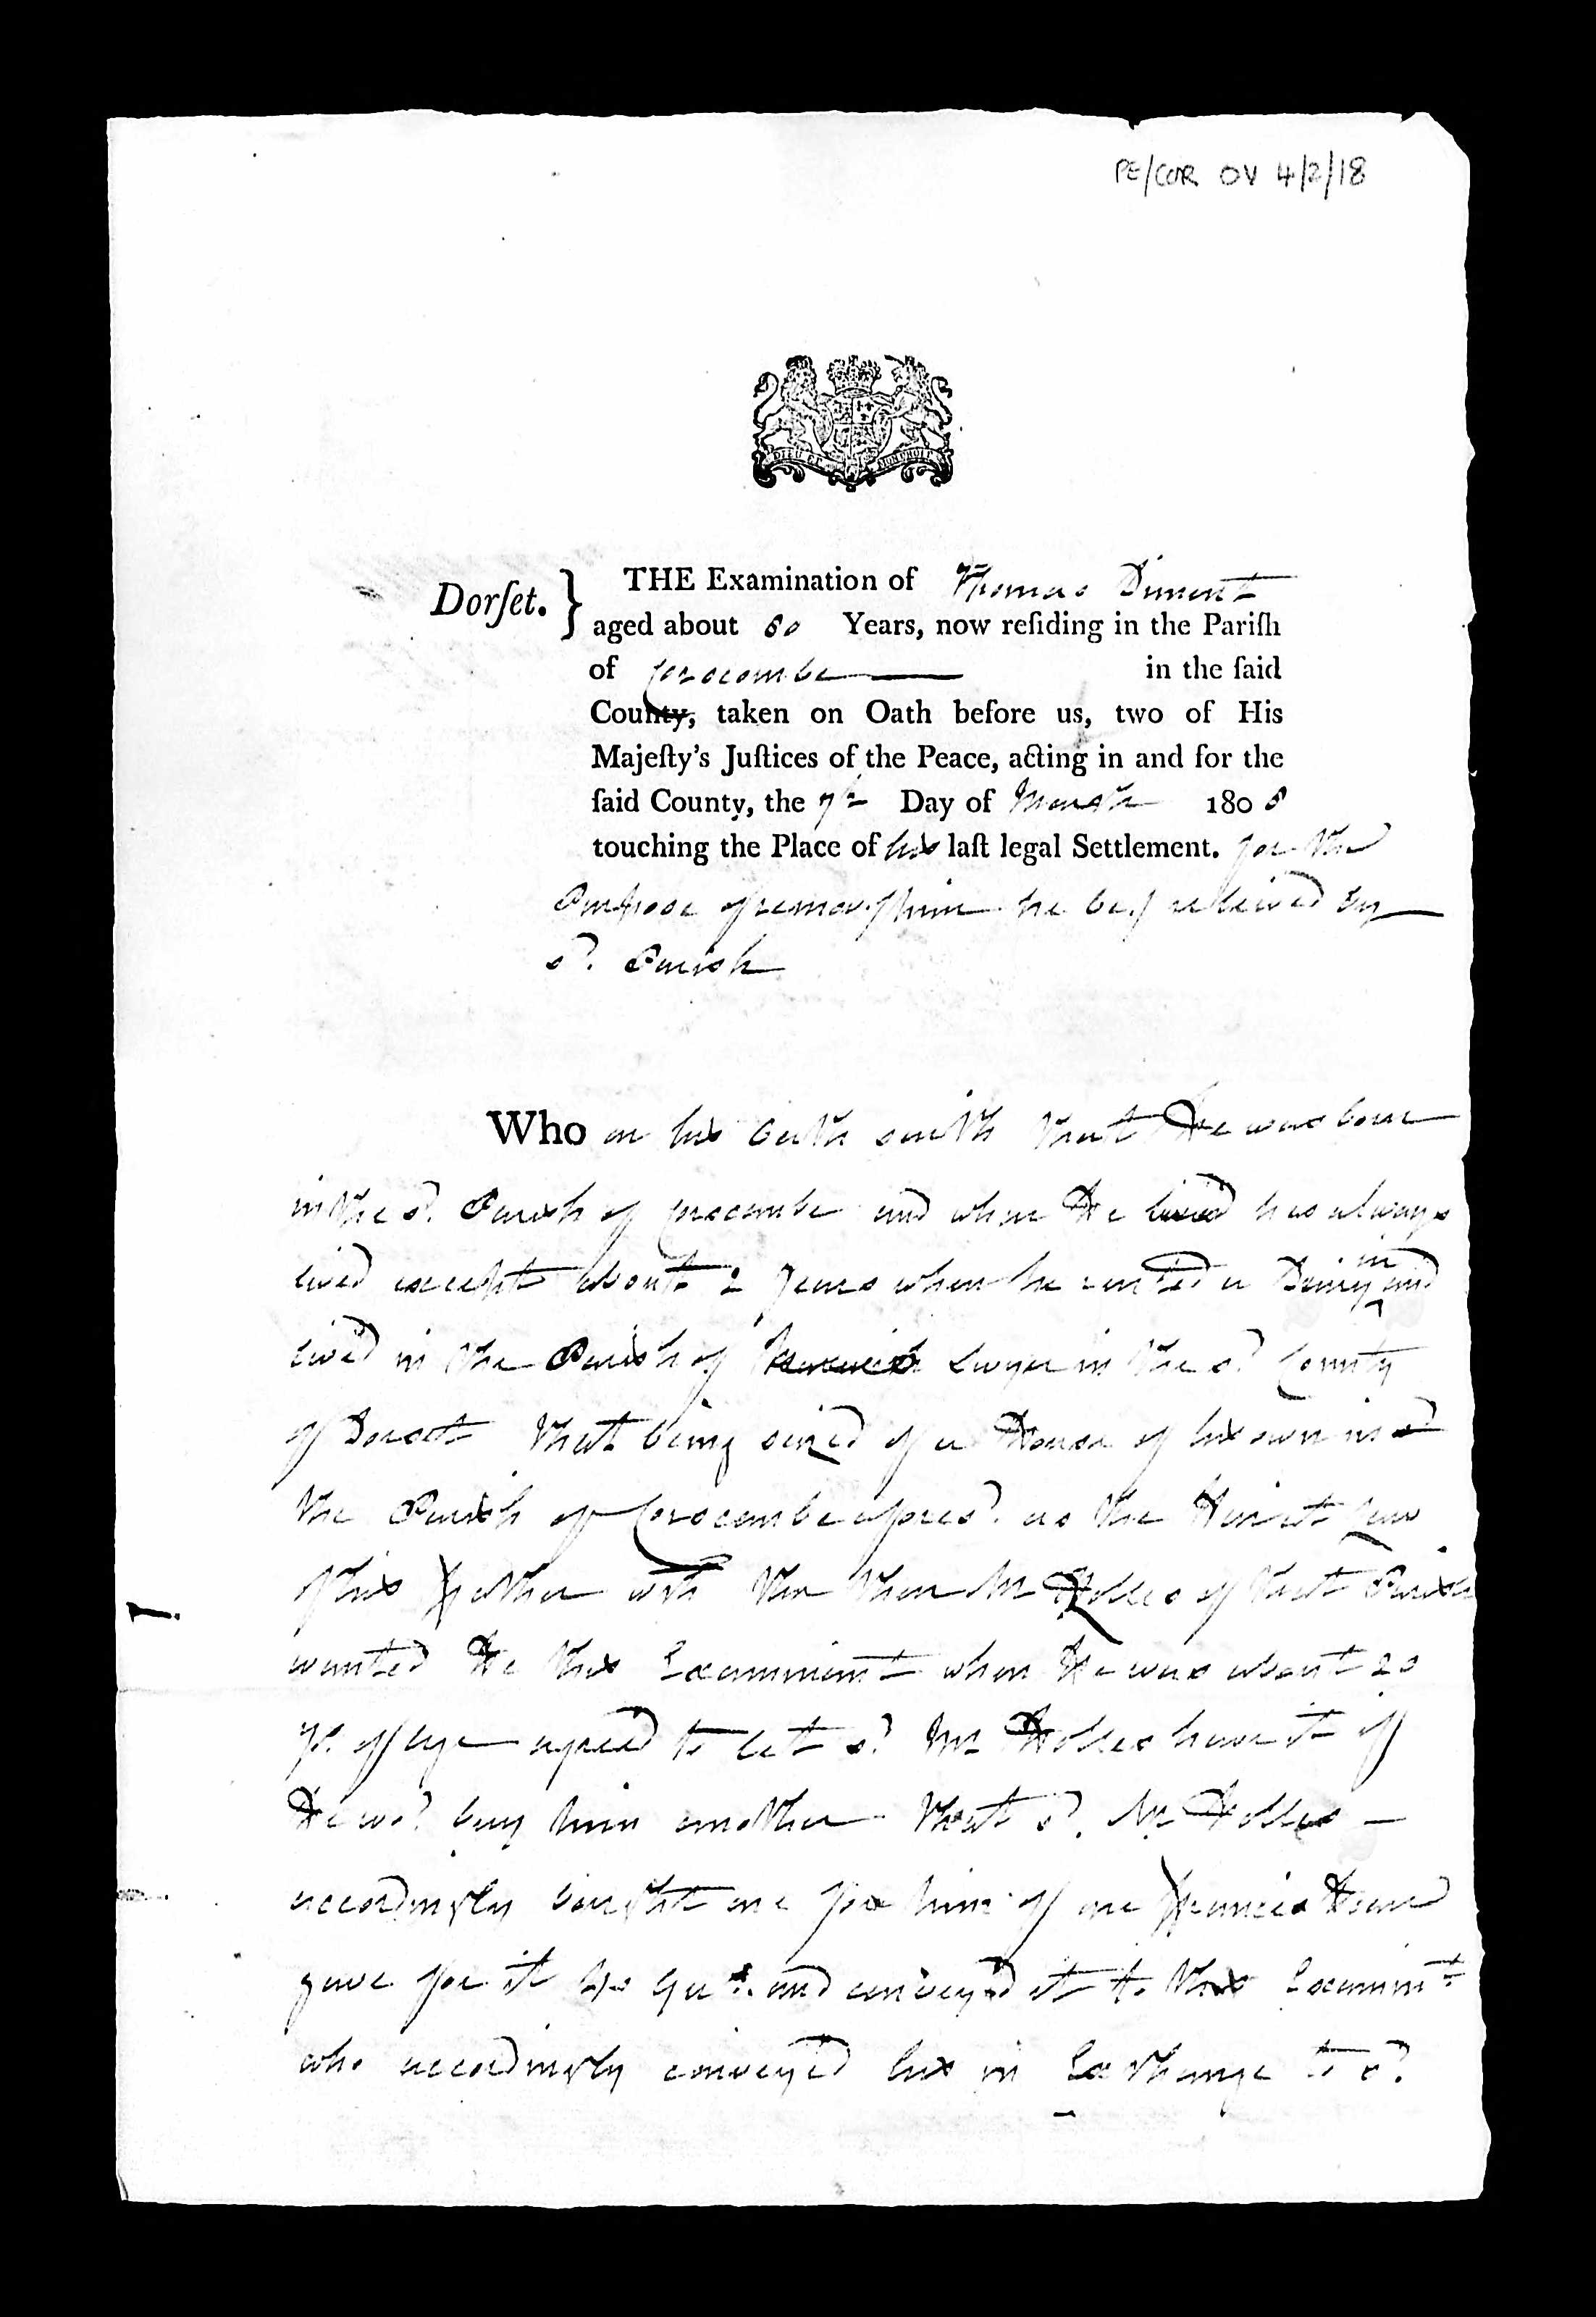 PE/COR OV 4/2/18
DIEU ET MON DROIT
Dorſet. } THE Examination of Thomas Diment
aged about 80 Years, now reſiding in the Pariſh
of Corscombe in the ſaid
County, taken on Oath before us, two of His
Majeſty's Juſtices of the Peace, acting in and for the
ſaid County, the 7th Day of March 1808
touching the Place of his laſt legal Settlement. for the
Purpose of remov.g him he be.g relieved by
sd. Parish
Who on his Oath saith that He was born
in the sd. Parish of Corscombe and where He lived has always
lived except about 2 years when he rented a Dairy in and
lived in the Parish of Swyer in the sd. County
of Dorset that being seized of a House of his own in
the Parish of Corscombe afores.d as the Heir at Law
of his Father wch the then Mr Hollis of that Parish
wanted He this Examinant when He was about 20
yrs. of Age agreed to let sd. Mr Hollis have it if
He wd. buy him another that sd. Mr Hollis
accordingly bought one for him of one Francis
gave for it Gus. and conveyed it to this Examint
who accordingly conveyed his in Exchange to sd.